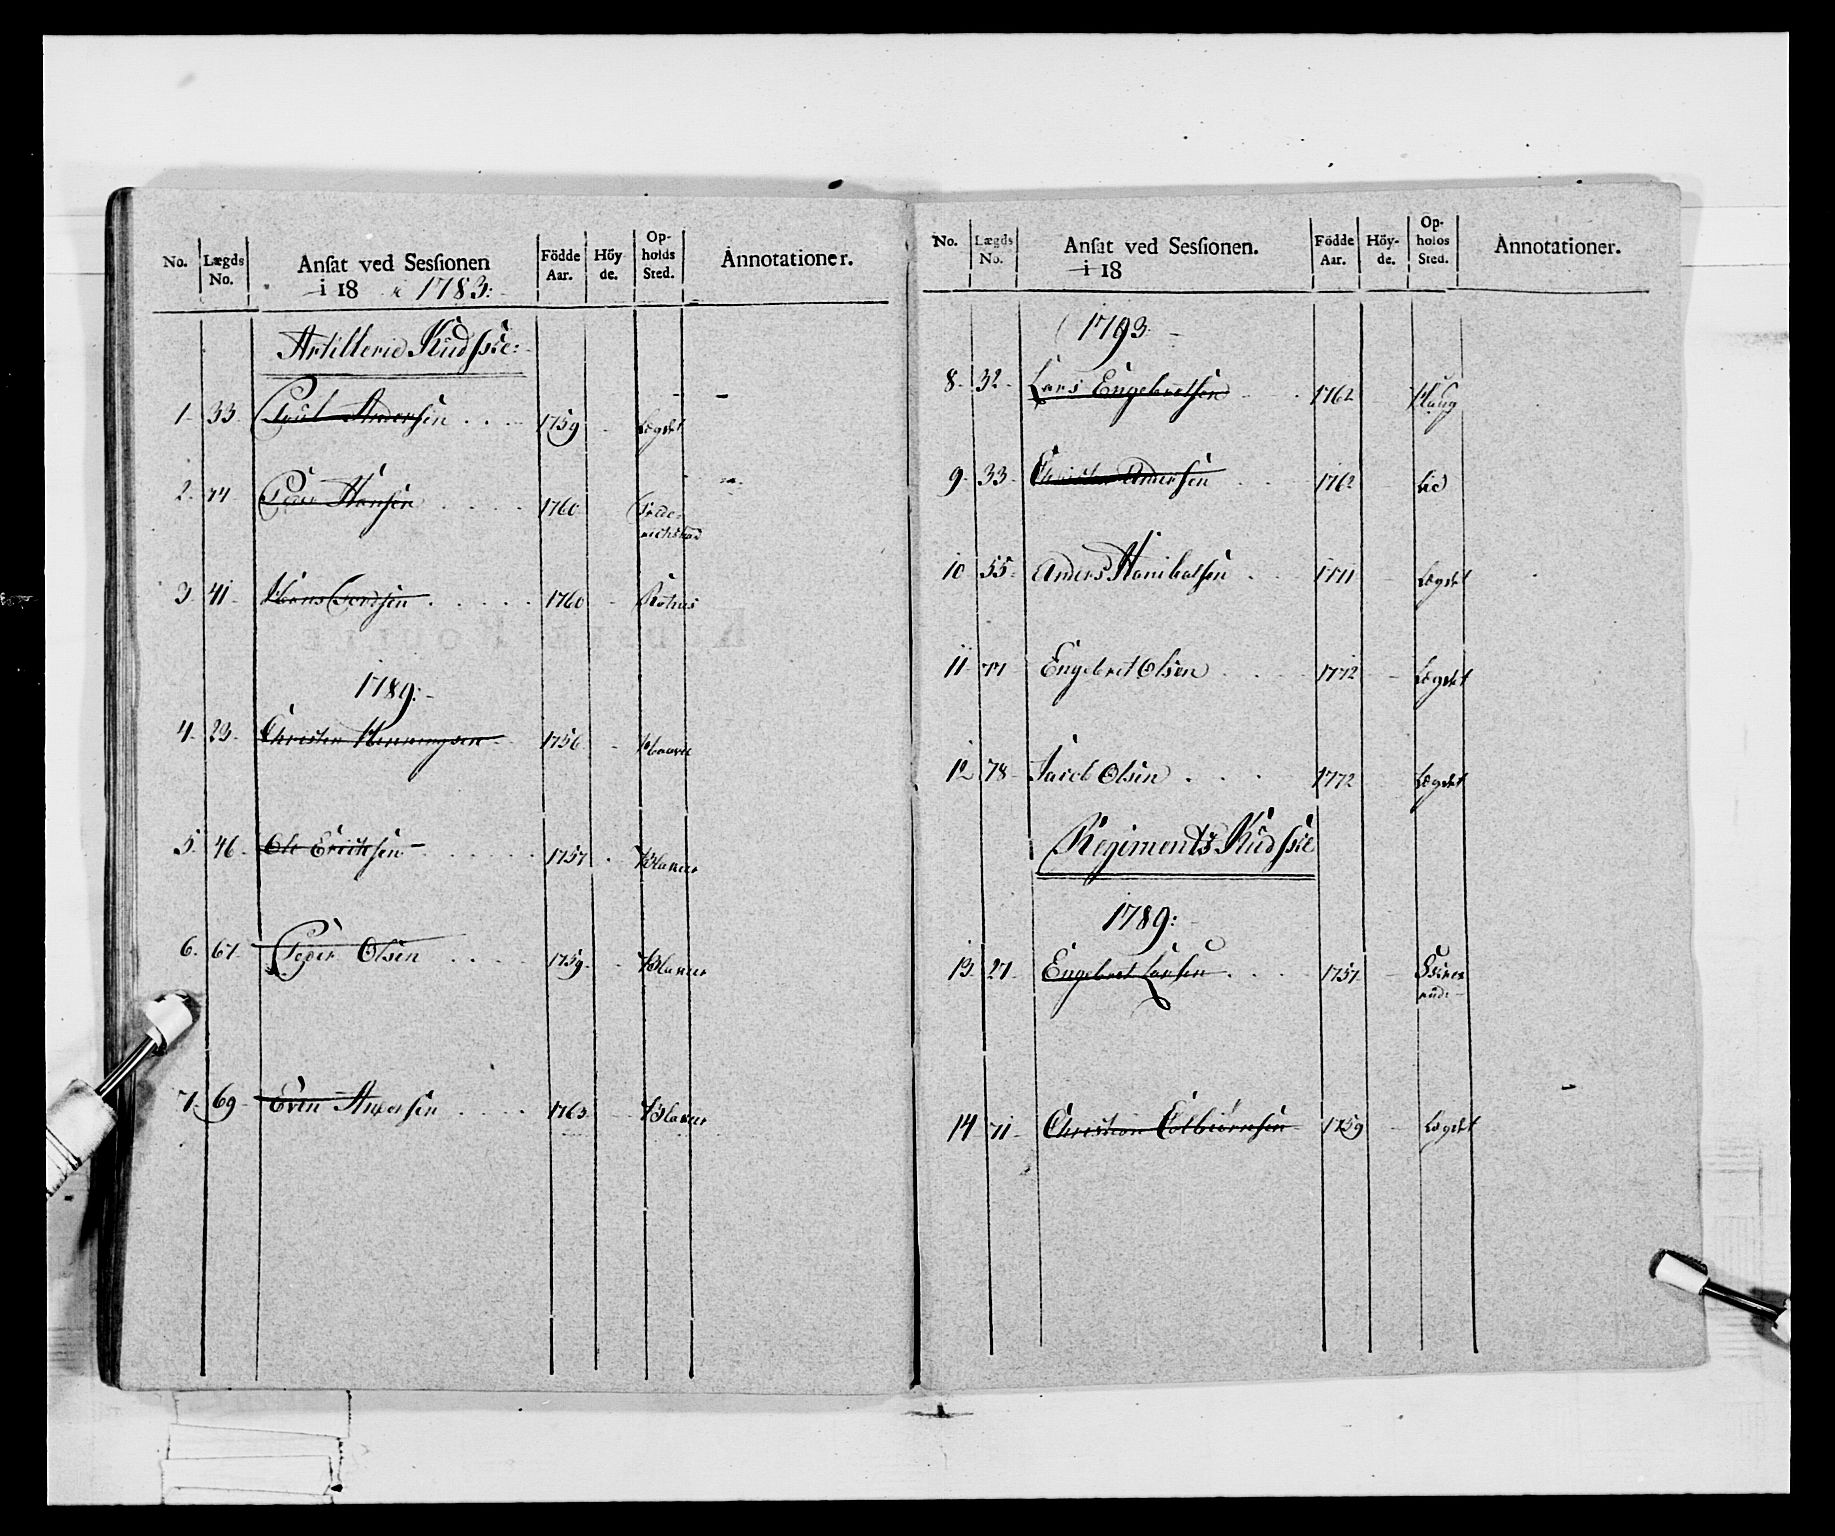 No. Lægds No. Ansat ved Sessionen i 18 i 1783: Födde Aar. Höyde. Opholds Sted. Annotationer.
Artillerie Kudske:
1. 33. Andersen 1759 Lægdet
2. Peder Hansen 1760 Frederichstad
3. 41. Hans 1760
1789:
4. 23. Christen Henningsen 1756
5. 46. Ole Ericksen 1757
6. 67. Peder Olsen 1759.
7. 69. Even Andersen 1763
No. Lægds No. Ansat ved Sessionen. i 18 Födde Aar. Höyde. Opholds Sted. Annotationer.
1793.
8. 32. Lars Engebretsen 1762 Haug
9. 33. Christen Andersen 1762 Lie
10 55. Anders Hanibalsen 1771 Lægdet
11. 77. Engebret Olsen 1772 Lægdet
12 78. Jacob Olsen 1772 Lægdet
Regiments Kudske
1789:
13. 27. Engebret Larsen 1757
14 71. Christian Colbiørnsen 1759 Lægdet